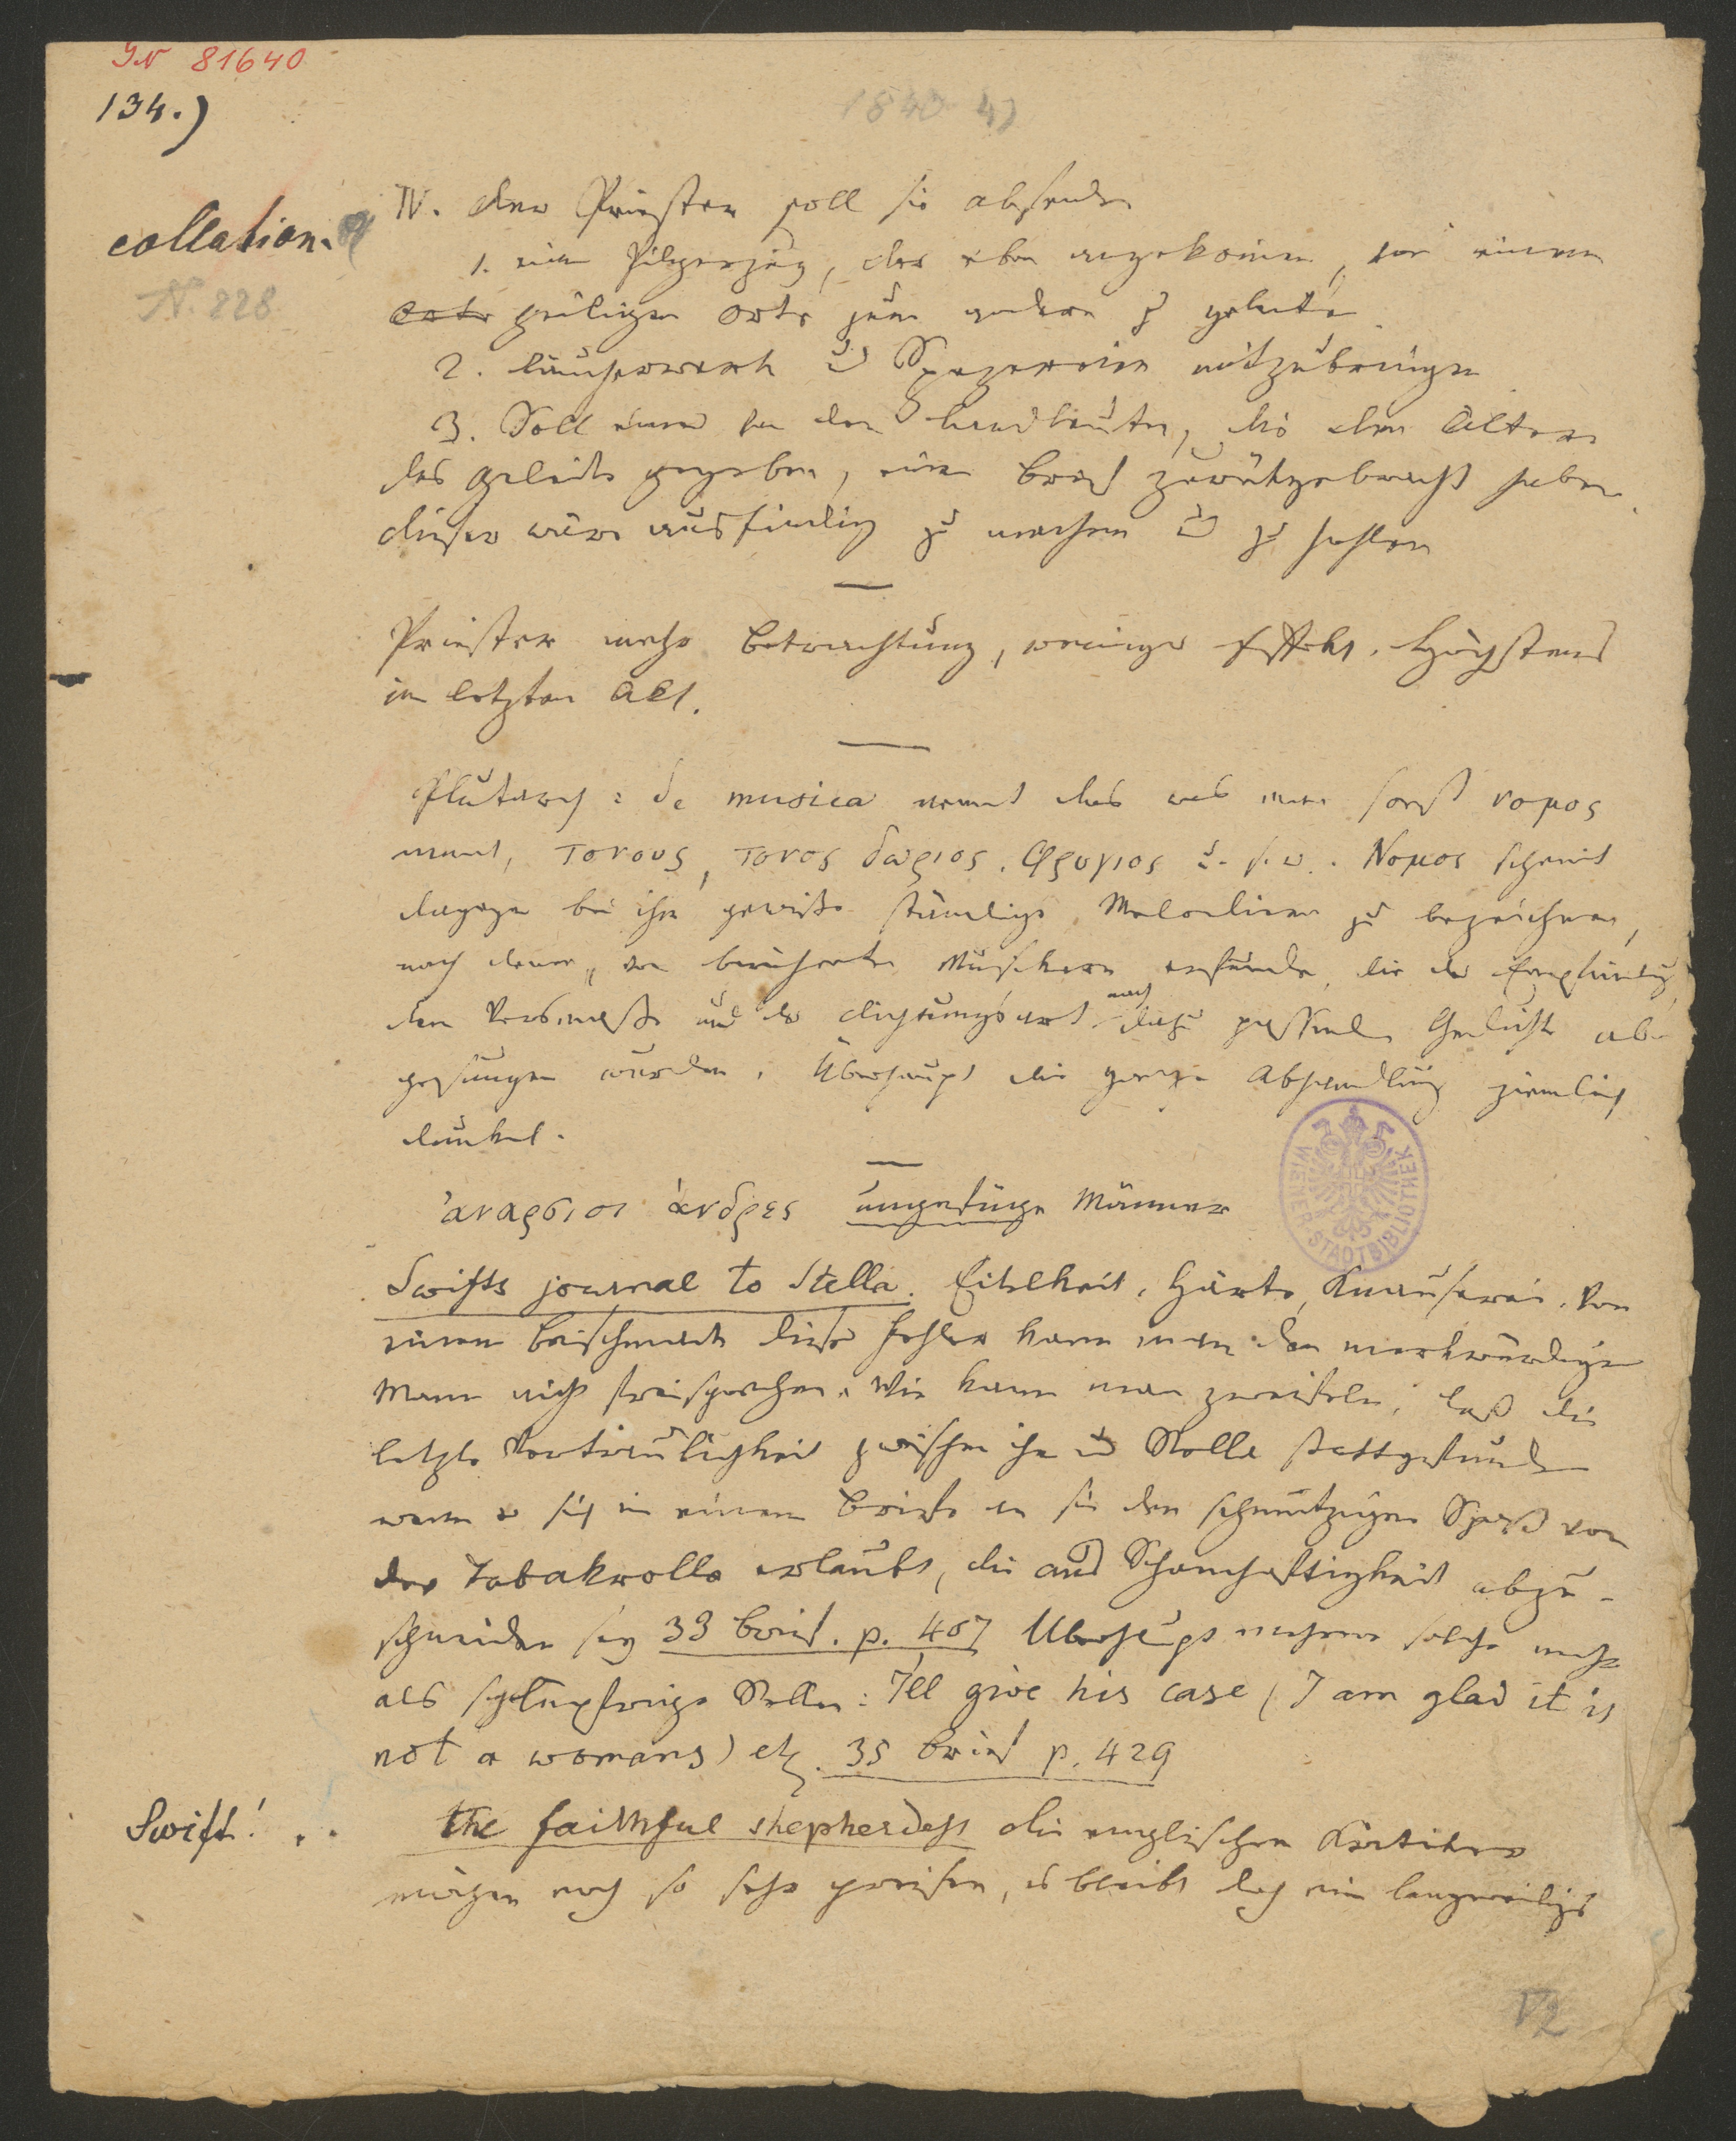 IN 81640
134.)
1840 41
collation.
N. 828
IV. der Priester soll sie absenden
1. einen Pilgerzug, der eben angekommen, von einem
Orte heiligen Orte zum andern zu geleiten
2. Räucherwerk u Spezereien mitzubringen
3. Soll einer von den Landleuten, die den Eltern
das Geleite gegeben, einen Brief zurückgebracht haben.
dieser wäre ausfindig zu machen u zu hohlen
Priester mehr Betrachtung, weniger Effekt. Höchstens
im letzten Akt.
Plutarch: de musica nennt das was man sonst νομος
nennt, τονους, τονος δωριος, φρυγιος u. s. w. Νομος scheint
dagegen bei ihm gewisse ständige Melodieen zu bezeichnen,
nach denen, von berühmten Musikern erfunden, die der Empfindung,
dem Versmaße und der Dichtungsart nach dazu passenden Gedichte ab-
gesungen wurden. Überhaupt die ganze Abhandlung ziemlich
dunkel.
ἀναρσιοι ἀνδρες ungefüge Männer
WIENER STADTBIBLIOTHEK
Swifts journal to Stella. Eitelkeit, Härte, Knauserei. Von
einem Beischmack dieser Fehler kann man den merkwürdigen
Mann nicht freisprechen. Wie kann man zweifeln, daß die
letzte Vertraulichkeit zwischen ihm u Stella stattgefunden
wenn er sich in einem Briefe an sie den schmutzigen Spaß von
der Tabakrolle erlaubt, die aus Schamhaftigkeit abzu-
schneiden sey 33 Brief. p. 407 Überhaupt mehrere solche mehr
als schlüpfrige Stellen: I'll give his case (I am glad it is
not a womans) etz. 35 Brief p. 429
Swift!
the faithful shepherdess die englischen Kritiker
mögen noch so sehr preisen, es bleibt doch ein langweiliges